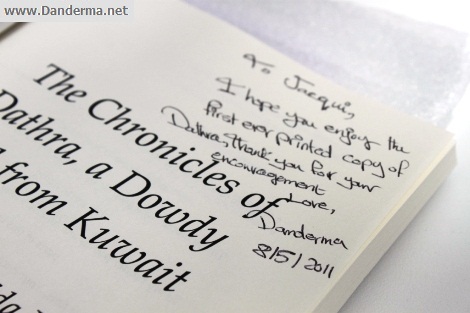 www.Danderma.net
To Jacqui,
I hope you enjoy the
first ever printed copy of
Dathra, thank you for your
encouragement
Love,
Danderma
8/5/2011
The Chronicles of
Dathra, a Dowdy
from Kuwait